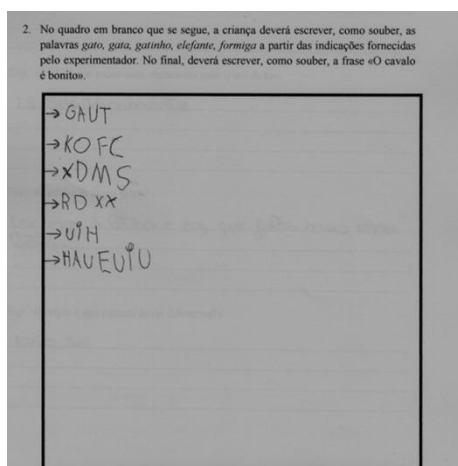 2. No quadro em branco que se segue, a criança deverá escrever, como souber, as
palavras gato, gata, gatinho, elefante, formiga a partir das indicações fornecidas
pelo experimentador. No final, deverá escrever, como souber, a frase «O cavalo
é bonito».
→ GAUT
→ KOFC
→ XDMS
→ RDXX
→ UiH
→ HAUEUiU